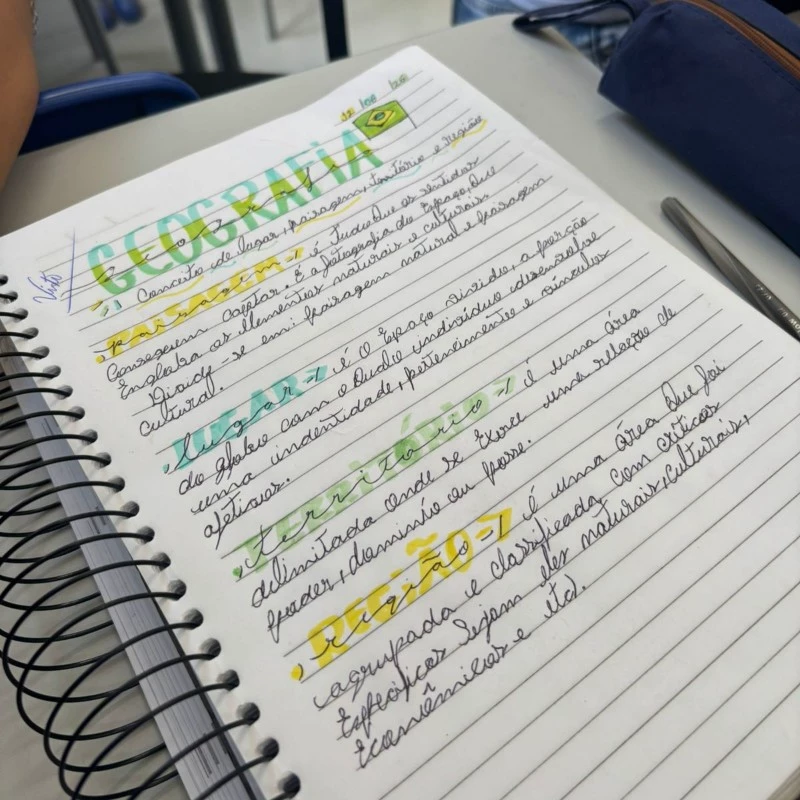 12 /08 /28
GEOGRAFIA
Geo Brasil
Visto
Conceito de lugar, paisagem, território e região
PAISAGEM
paisagem → é tudo que os sentidos
conseguem captar. É a fotografia do Espaço, que
Engloba os elementos naturais e culturais
Divide-se em: paisagem natural e paisagem
cultural.
LUGAR
lugar → é o Espaço vivido, a porção
do globo com o qual o indivíduo desenvolve
uma indentidade, pertencimento e vínculos
afetivos.
TERRITÓRIO
território → é uma área
delimitada onde se Exerce uma relação de
poder, domínio ou posse.
REGIÃO
região → é uma área que foi
agrupada e classificada com critérios
Específicos sejam eles naturais, culturais,
Econômicos e etc.